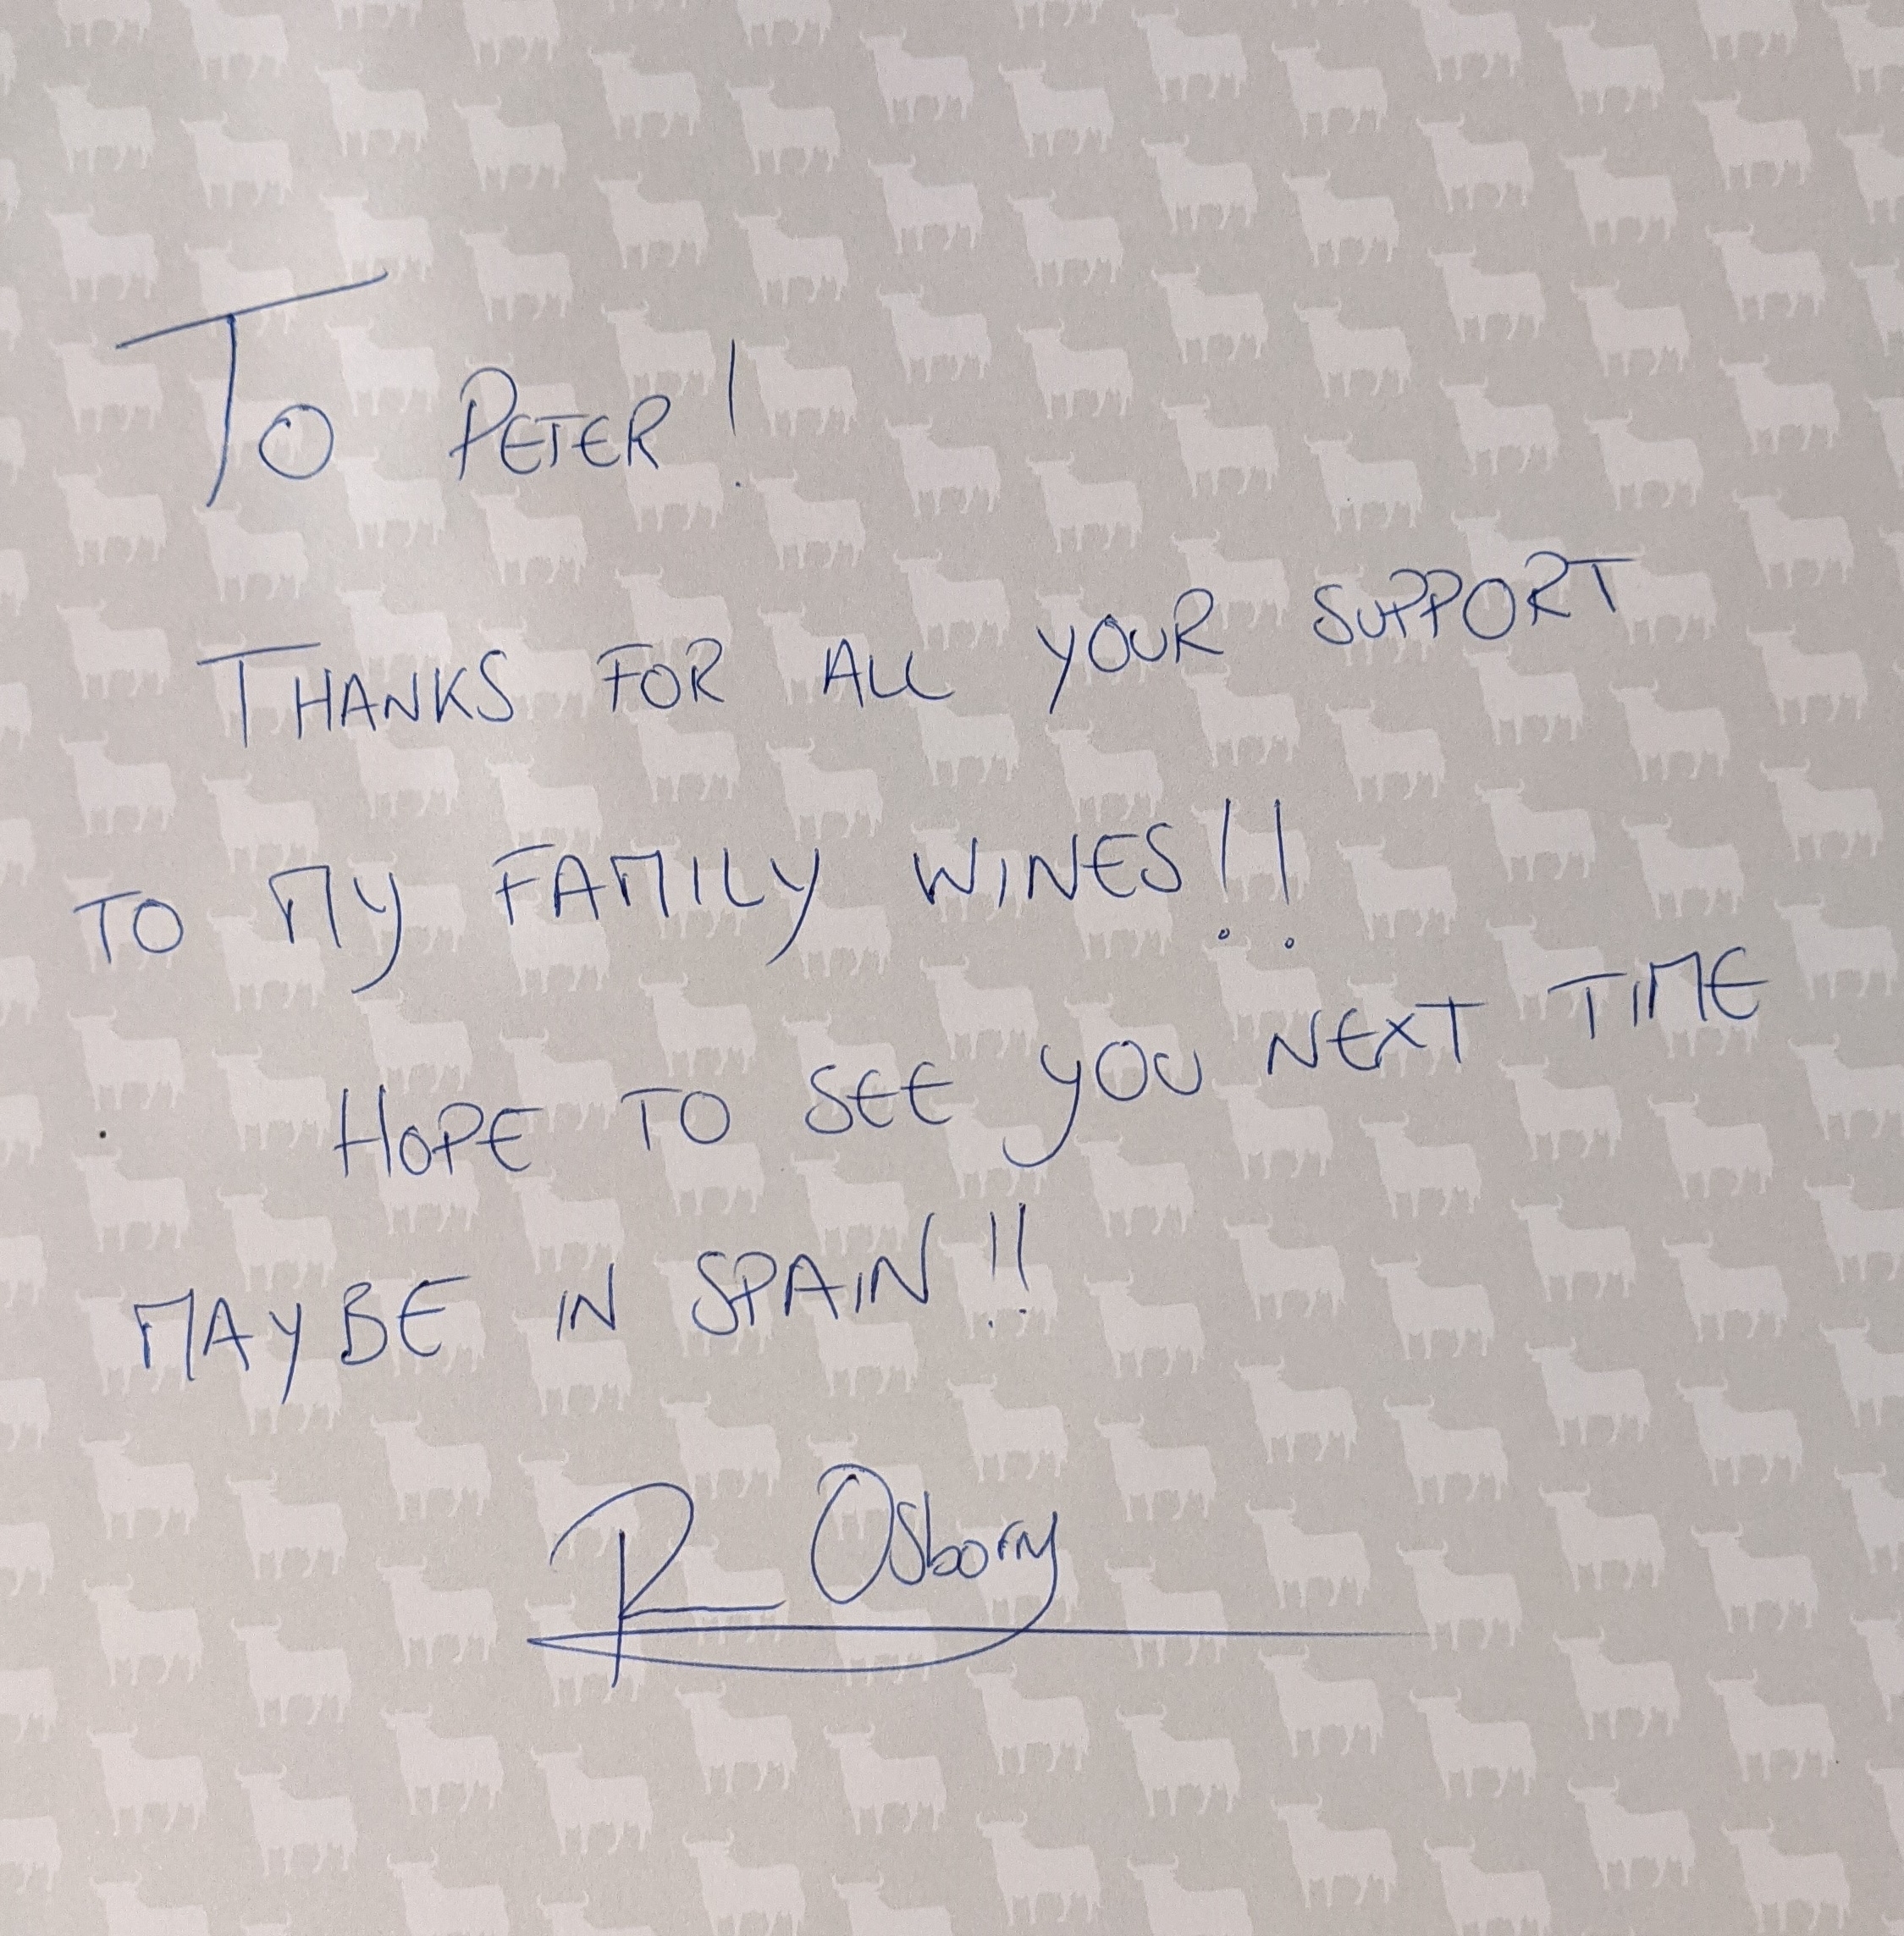 To PETER!
THANKS FOR ALL YOUR SUPPORT
TO MY FAMILY WINES!!
HOPE TO SEE YOU NEXT TIME
MAYBE IN SPAIN!!
R Osborny